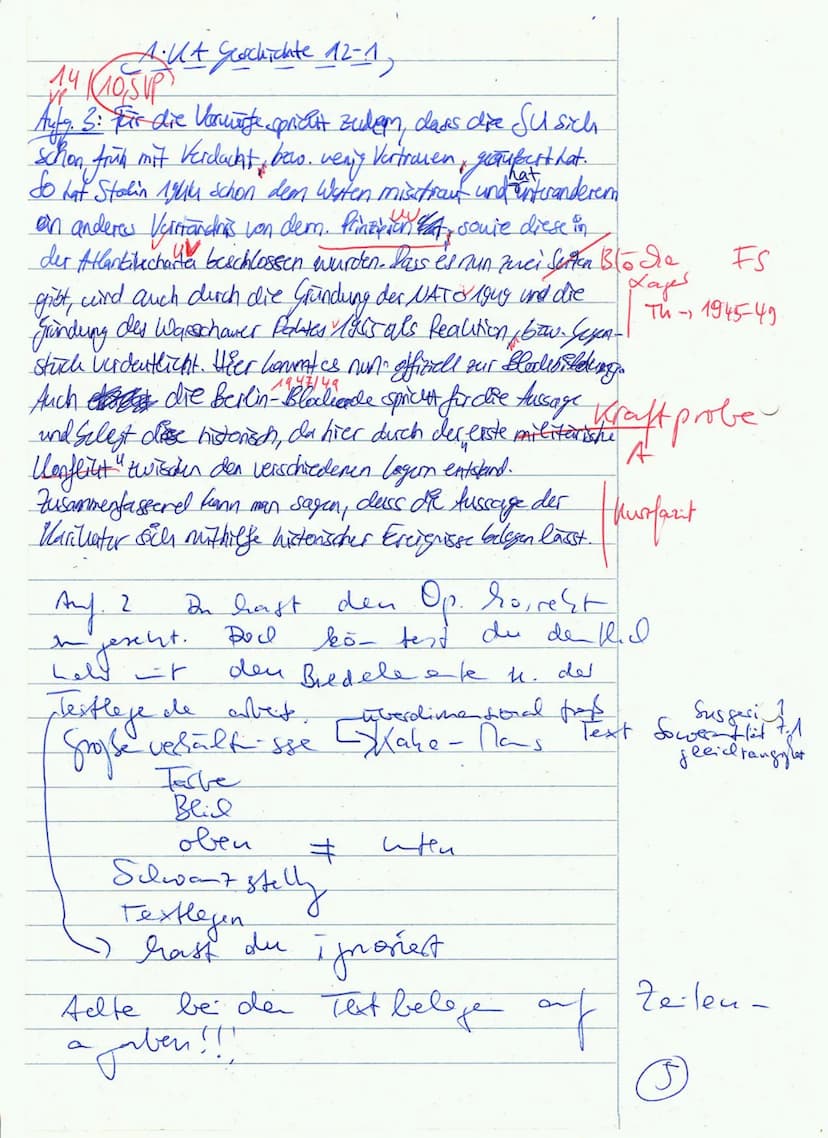 1. KA Geschichte 12-1
14 VP / 10,5VP
Aufg. 3: Für die Vorwürfe spricht zudem, dass die SU sich
schon früh mit Verdacht, bzw. wenig Vertrauen, geäußert hat.
So hat Stalin 1944 schon dem Westen misstraut und hat unteranderem
ein anderes Verständnis von dem. Prinzipien, sowie diese in
der Atlantikcharta beschlossen wurden. Dass es nun zwei Seiten Blöcke FS
Lager
gibt, wird auch durch die Gründung der NATO 1949 und die
Th → 1945-49
Gründung des Warschauer Paktes 1955 als Reaktion, bzw. Gegen-
stück verdeutlicht. Hier kommt es nun offiziell zur Blockbildung.
1947/49
Auch die Berlin-Blockade spricht für die Aussage
Kraftprobe
und belegt diese historisch, da hier durch der „erste militärische
A
Konflikt" zwischen den verschiedenen Lagern entstand.
Zusammenfassend kann man sagen, dass die Aussage der
Kurzfazit
Karikatur sich mithilfe historischer Ereignisse belegen lässt.
Auf. 2 Du hast den Op. korrekt
umgesetzt. Doch könntest du
mit den Bildelemente u. der
Textlege de arbeit. überdimensional groß
Größeverhältnisse Katze - Maus Text Souveränität
gleichrangig
Farbe
Blick
oben ≠ unten
Schwanzstellg
Textlegen
hast du ignoriert
Achte bei den Textbelegen auf Zeilen-
agaben!!!
5